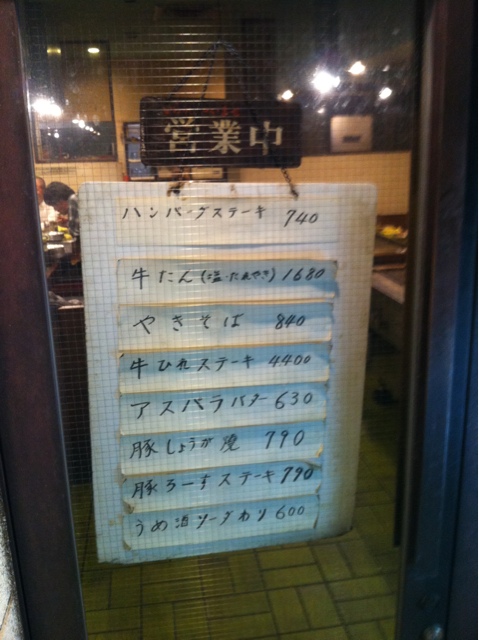 営業中
ハンバーグステーキ 740
牛たん(塩・たれやき) 1680
やきそば 840
牛ひれステーキ 4400
アスパラバター 630
豚しょうが焼 790
豚ろーすステーキ 790
うめ酒ソーダわり 600